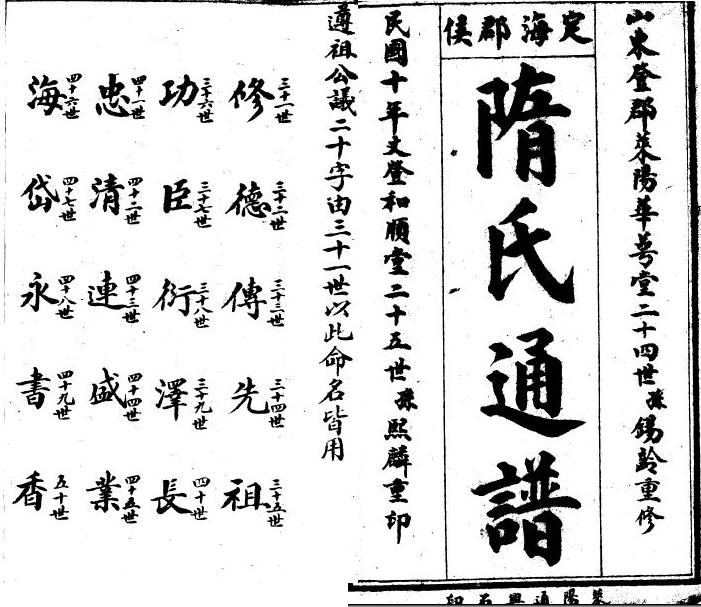 山東登郡萊陽華萼堂二十四世孫錫齡重修
定海郡侯
隋氏通譜
民國十年文登和順堂二十五世孫熙麟重印
萊陽通興石印
遵祖公議二十字由三十一世以此命名皆用
修三十一世 德三十二世 傳三十三世 先三十四世 祖三十五世
功三十六世 臣三十七世 衍三十八世 澤三十九世 長四十世
忠四十一世 清四十二世 連四十三世 盛四十四世 業四十五世
海四十六世 岱四十七世 永四十八世 書四十九世 香五十世